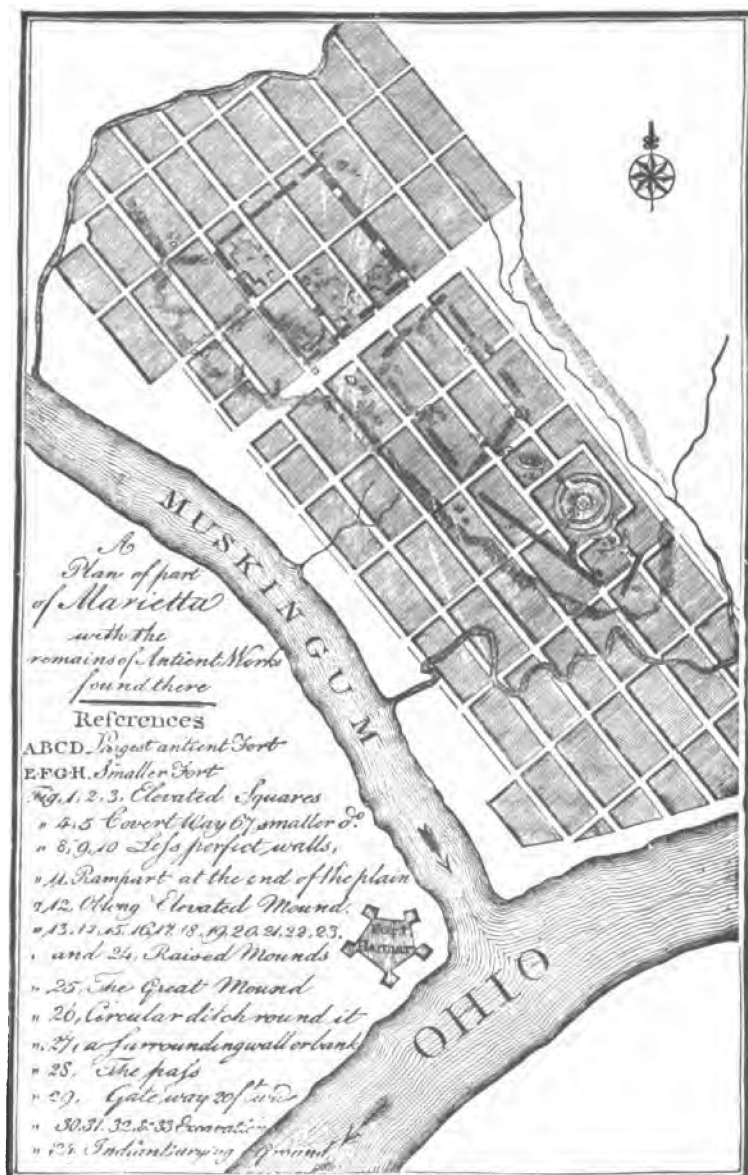 A
Plan of part
of Marietta
with the
remains of Antient Works
found there
References
ABCD. Largest antient Fort
E.F.G.H. Smaller Fort
Fig. 1. 2. 3. Elevated Squares
" 4. 5 Covert Way 67 smaller do.
" 8. 9. 10 Less perfect walls,
" 11. Rampart at the end of the plain
" 12. Oblong Elevated Mound.
" 13. 15. 16. 17. 18. 19. 20. 21. 22. 23.
" and 24. Raised Mounds
" 25. The Great Mound
" 26, Circular ditch round it
" 27, a surrounding wall or bank
" 28. The pass
" 29. Gate way 20ft
" 30. 31. 32. & 33 Excavation
Indian burying Ground
MUSKINGUM
Fort
Harmar
OHIO